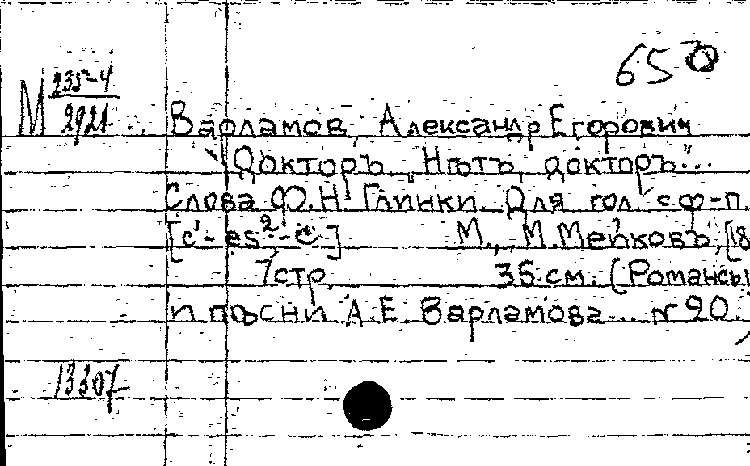 650
М 235-4
2921
Варламов, Александр Егорович
Докторъ. „Нѣтъ, докторъ"...
Слова Ф.Н. Глинки. Для гол. с ф-п.
[c¹-es²-] М., М. Мейковъ, [18
7 стр. 35 см. (Романсы
и пѣсни А.Е. Варламова... № 20.
13307